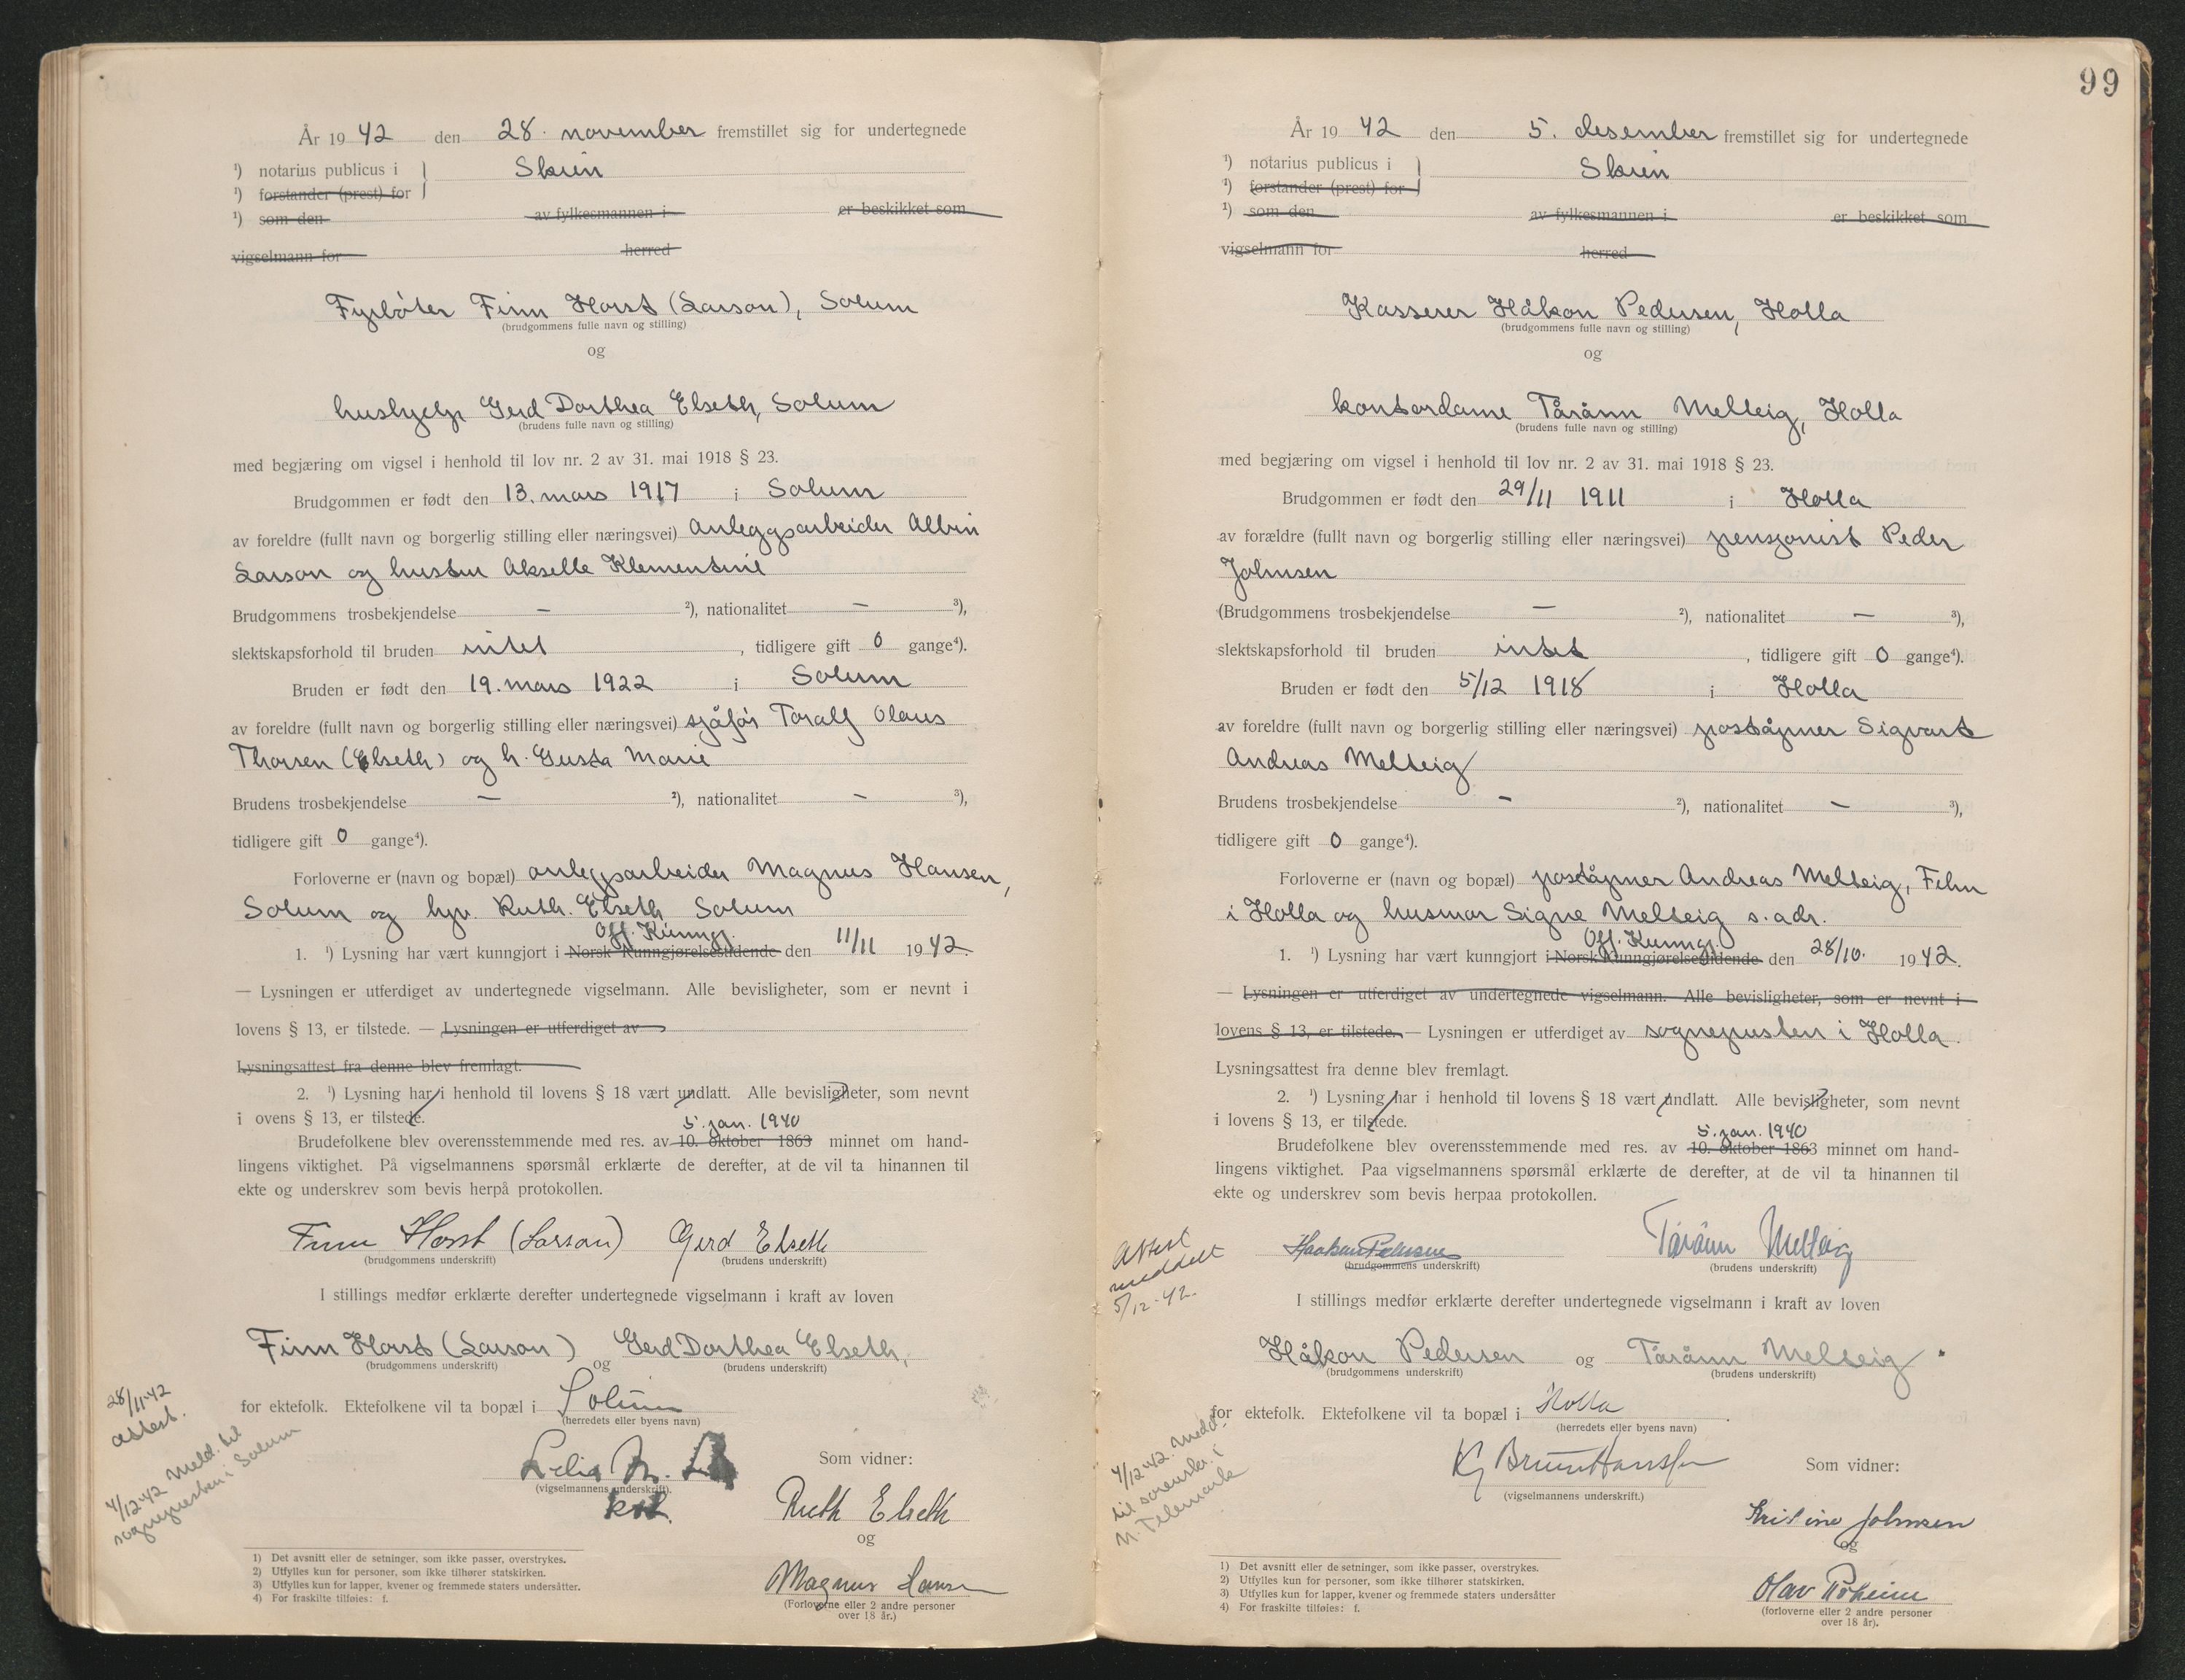 År 19 42 den 28. november fremstillet sig for undertegnede
¹) notarius publicus i } Skien
¹) forstander (prest) for
¹) som den av fylkesmannen i er beskikket som
vigselmann for herred
Fyrbøter Finn Horst (Larson), Solum
(brudgommens fulle navn og stilling)
og
hushjelp Gerd Dorthea Elseth, Solum
(brudens fulle navn og stilling)
med begjæring om vigsel i henhold til lov nr. 2 av 31. mai 1918 § 23.
Brudgommen er født den 13. mars 1917 i Solum
av foreldre (fullt navn og borgerlig stilling eller næringsvei) anleggsarbeider Albin
Larson og hustru Akselle Klementine
Brudgommens trosbekjendelse — ²), nationalitet — ³),
slektskapsforhold til bruden intet, tidligere gift 0 gange⁴).
Bruden er født den 19. mars 1922 i Solum
av foreldre (fullt navn og borgerlig stilling eller næringsvei) sjåfør Toralf Olaus
Thorsen (Elseth) og h. Gusta Marie
Brudens trosbekjendelse — ²), nationalitet — ³),
tidligere gift 0 gange⁴).
Forloverne er (navn og bopæl) anleggsarbeider Magnus Hansen,
Solum og hgv. Ruth. Elseth Solum
Off. Kunngj.
1. ¹) Lysning har vært kunngjort i Norsk Kunngjørelsestidende den 11/11 19 42.
— Lysningen er utferdiget av undertegnede vigselmann. Alle bevisligheter, som er nevnt i
lovens § 13, er tilstede. — Lysningen er utferdiget av
Lysningsattest fra denne blev fremlagt.
2. ¹) Lysning har i henhold til lovens § 18 vært undlatt. Alle bevisligheter, som nevnt
i ovens § 13, er tilstede.
5. jan. 1940
Brudefolkene blev overensstemmende med res. av 10. oktober 1863 minnet om hand-
lingens viktighet. På vigselmannens spørsmål erklærte de derefter, at de vil ta hinannen til
ekte og underskrev som bevis herpå protokollen.
Finn Horst (Larson) Gerd Elseth
(brudgommens underskrift) (brudens underskrift)
I stillings medfør erklærte derefter undertegnede vigselmann i kraft av loven
Finn Horst (Larson) og Gerd Dorthea Elseth,
(brudgommens underskrift) (brudens underskrift)
28/11-42
attest.
for ektefolk. Ektefolkene vil ta bopæl i Solum
(herredets eller byens navn)
4/12-42 Meld. til
sognepresten i Solum
Som vidner:
(vigselmannens underskrift).
Ruth Elseth
og
Magnus Hansen
(Forloverne eller 2 andre personer
over 18 år.)
1) Det avsnitt eller de setninger, som ikke passer, overstrykes.
2) Utfylles kun for personer, som ikke tilhører statskirken.
3) Utfylles kun for lapper, kvener og fremmede staters undersåtter.
4) For fraskilte tilføies: f.
99
År 19 42 den 5. desember fremstillet sig for undertegnede
¹) notarius publicus i } Skien
¹) forstander (prest) for
¹) som den av fylkesmannen i er beskikket som
vigselmann for herred
Kasserer Håkon Pedersen, Holla
(brudgommens fulle navn og stilling)
og
kontordame Tårånn Melteig, Holla
(brudens fulle navn og stilling)
med begjæring om vigsel i henhold til lov nr. 2 av 31. mai 1918 § 23.
Brudgommen er født den 29/11 1911 i Holla
av forældre (fullt navn og borgerlig stilling eller næringsvei) pensjonist Peder
Johnsen
(Brudgommens trosbekjendelse — ²), nationalitet — ³),
slektskapsforhold til bruden intet, tidligere gift 0 gange⁴).
Bruden er født den 5/12 1918 i Holla
av foreldre (fullt navn og borgerlig stilling eller næringsvei) poståpner Sigvart
Andreas Melteig
Brudens trosbekjendelse — ²), nationalitet — ³),
tidligere gift 0 gange⁴).
Forloverne er (navn og bopæl) poståpner Andreas Melteig, Fehn
i Holla og husmor Signe Melteig s. adr.
Off. Kunngj.
1. ¹) Lysning har vært kunngjort i Norsk Kunngjørelsestidende den 28/10. 19 42.
— Lysningen er utferdiget av undertegnede vigselmann. Alle bevisligheter, som er nevnt i
lovens § 13, er tilstede. — Lysningen er utferdiget av sognepresten i Holla.
Lysningsattest fra denne blev fremlagt.
2. ¹) Lysning har i henhold til lovens § 18 vært undlatt. Alle bevisligheter, som nevnt
i lovens § 13, er tilstede.
5. jan. 1940
Brudefolkene blev overensstemmende med res. av 10. oktober 1863 minnet om hand-
lingens viktighet. Paa vigselmannens spørsmål erklærte de derefter, at de vil ta hinannen til
ekte og underskrev som bevis herpaa protokollen.
Attest
meddelt
5/12-42.
Haakon Pedersen Tårånn Melteig
(brudgommens underskrift) (brudens underskrift)
I stillings medfør erklærte derefter undertegnede vigselmann i kraft av loven
Håkon Pedersen og Tårånn Melteig.
(brudgommens underskrift) (brudens underskrift)
for ektefolk. Ektefolkene vil ta bopæl i Holla.
(herredets eller byens navn)
4/12-42. Medd.
til sorenskr. i
N. Telemark
K Bruun Hanssen
(vigselmannens underskrift.)
Som vidner:
Kristine Johnsen
og
Olav
(forloverne eller 2 andre personer
over 18 år).
1) Det avsnitt eller de setninger, som ikke passer, overstrykes.
2) Utfylles kun for personer, som ikke tilhører statskirken.
3) Utfylles kun for lapper, kvener og fremmede staters undersåtter
4) For fraskilte tilføies: f.